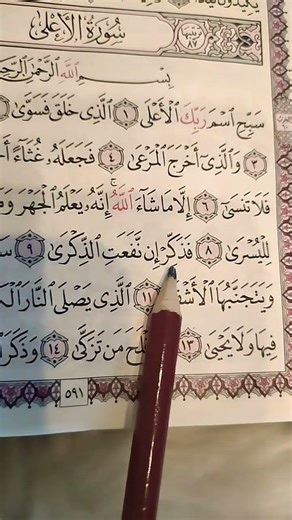 سُورَةُ الأَعْلَى
بِسْمِ اللَّهِ الرَّحْمَٰنِ
سَبِّحِ اسْمَ رَبِّكَ الْأَعْلَى ١ الَّذِي خَلَقَ فَسَوَّىٰ
٣ وَالَّذِي أَخْرَجَ الْمَرْعَىٰ ٤ فَجَعَلَهُ غُثَاءً
فَلَا تَنسَىٰ ٦ إِلَّا مَا شَاءَ اللَّهُ إِنَّهُ يَعْلَمُ الْجَهْرَ
لِلْيُسْرَىٰ ٨ فَذَكِّرْ إِن نَّفَعَتِ الذِّكْرَىٰ ٩
وَيَتَجَنَّبُهَا ١١ الَّذِي يَصْلَى النَّارَ
فِيهَا وَلَا يَحْيَىٰ ١٣ مَن تَزَكَّىٰ ١٤ وَذَكَرَ
٥٩١